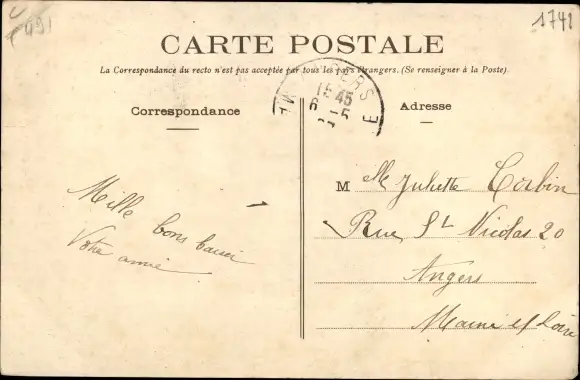 1741
CARTE POSTALE
La Correspondance du recto n'est pas acceptée par tous les pays étrangers. (Se renseigner à la Poste).
Correspondance
Adresse
45
M Mlle Juliette Corbin
Rue St Nicolas 20
Angers
Maine et Loire
Mille bons baisers
Votre amie